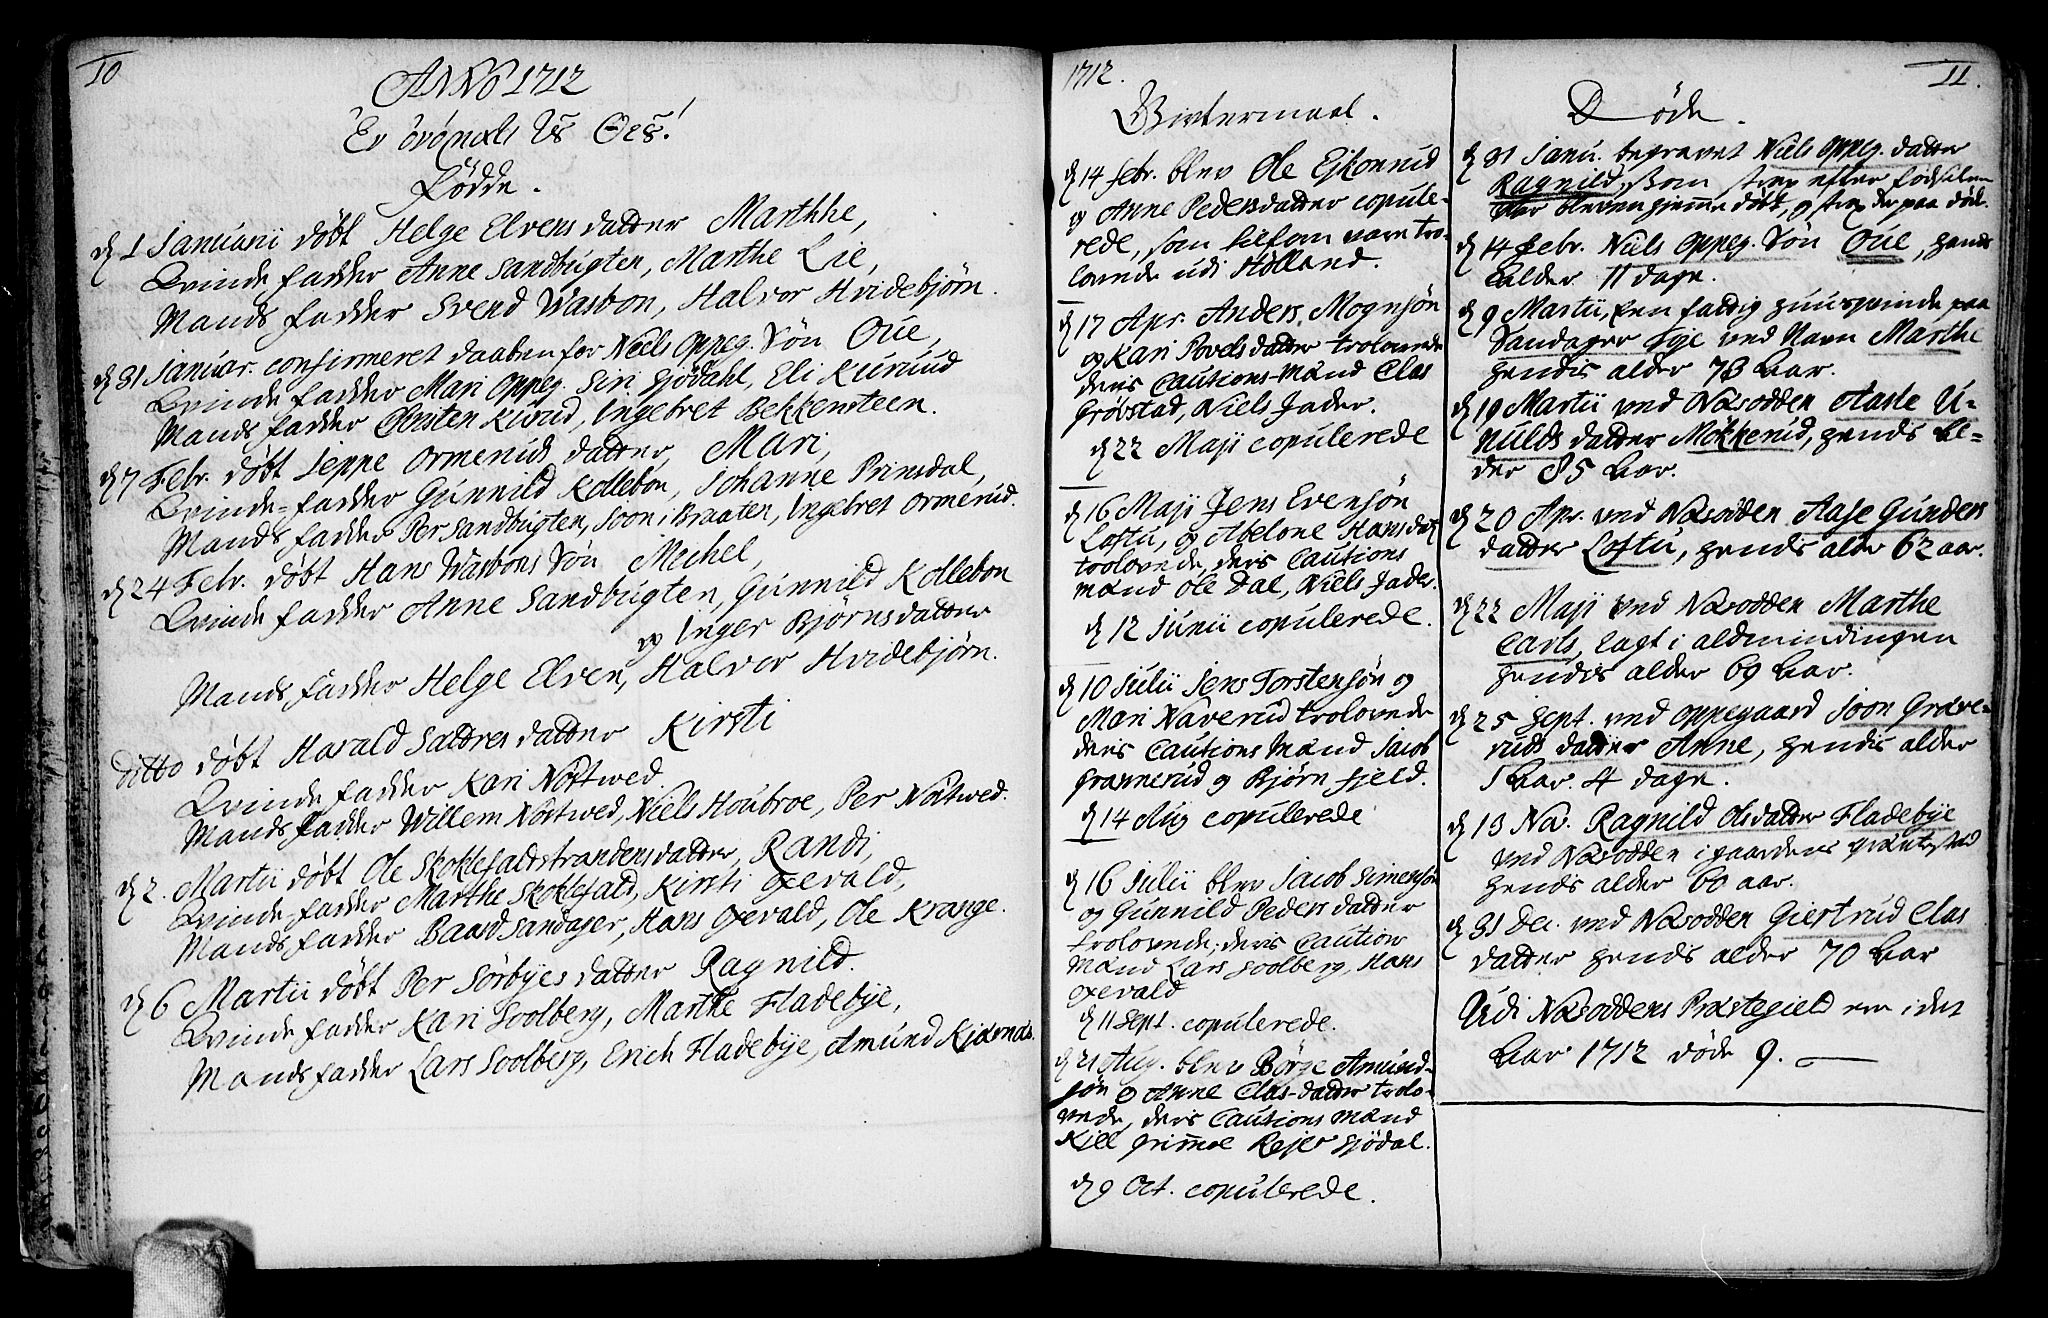 10
ANNO 1712
Fødde.
d 1 Januarii døbt Helge Elvens datter Marthhe,
Qvinde fadder Anne Sandbugten, Marthe Lie,
Mands fadder Svend Wasbon, Halvor Hvidebjørn.
d 31 Januar. confirmeret daaben for Niels Oppeg. Søn Oue,
Qvinde fadder Mari Oppeg. Siri Sjødahl, Eli Kuruud
Mands fadder Christen Kurud, Ingebret Bekkensteen.
d 7 Febr. døbt Jeppe Ormeruds datter, Mari,
Qvinde=fadder Gunnild Kollebon, Johanne Prinsdal,
Mands fadder Per Sandbugten, Joon i Braaten, Ingebret Ormerud.
d 24 Febr. døbt Hans Wasbons Søn Michel,
Qvinde fadder Anne Sandbugten, Gunnild Kollebon
og Inger Bjørnsdatter
Mands fadder Helge Elven, Halvor Hvidebjørn.
Ditto døbt Harald Sættres datter Kirsti
Qvinde fadder Kari Nøstwed
Mands fadder Willem Nøstwed, Niels Houbroe, Per Nøstwed.
d 2. Martii døbt Ole Skoklefaldstrandens datter, Randi,
Qvinde=fadder Marthe Skoklefald, Kirsti Oxevald,
Mands fadder Baard Sandager, Hans Oxevald, Ole Krange.
d 6 Martii døbt Per Sørbyes datter Ragnild.
Qvinde fadder Kari Soolberg, Marthe Fladebye,
Mands fadder Lars Soolberg, Erich Fladebye, Amund Kjærnæs.
1712.
d 14 febr. blev Ole Ejkonrud
og Anne Pedersdatter copule-
rede, som tilforn vare tro-
lovede udi Holland.
d 17 Apr. Anders Mognsøn
og Kari Povels datter trolovede
deris Cautions-mænd Clas
Grøvstad, Niels Jader.
d 22 Maji copulerede
d 16 Maji Jens Evensøn
Loftu, og Abelone Hansdatr
trolovede, deris Cautions
mænd Ole Dal, Niels Jader.
d 12 Junii copulerede.
d 10 Julii Jens Torstensøn og
Mari Naverud trolovede
deris Cautions Mænd Jacob
Grannerud og Bjørn Fjeld.
d 14 Aug copulerede
d 16 Julii blev Jacob Simensøn
og Gunnild Peders datter
trolovede; deris Cautions
mænd Lars Soolberg, Hans
Oxevald
d 11 Sept. copulerede.
d 21 Aug. blev Børge Amund-
søn og Anne Clas-datter trolo-
vede, deris Cautions mænd
Kiel Grimmoe Rejer Sjødal.
d 9 Oct. copulerede.
11.
Døde.
d 31 Janu. begravet Niels Oppeg. datter
Ragnild, som strax efter fødselen
bleven hjemme døbt, og strax der paa døde.
d 14 Febr. Niels Oppeg. Søn Oue, hends
alder 11 dage.
d 9 Martii, een fattig huusqvinde paa
Sandager Eye ved Navn Marthe
hendis alder 73 Aar.
d 19 Martii ved Næsodden Aaste U-
nulds datter Mokkerud, hends al=
der 85 Aar.
d 20 Apr. ved Næsodden Aase Gunders
datter Loftu, hends alder 62 aar.
d 22 Maji ved Næsodden Marthe
Carls, lagt i aldmindingen
hendis alder 69 Aar.
d 25 Sept. ved Oppegaard Joon Græve-
ruds datter Anne, hendis alder
1 Aar. 4 dage.
d 13 No. Ragnild Olsdatter Fladebye
ved Næsodden i gaardens
hends alder 60 aar.
d 31 Dec. ved Næsodden Giertrud Clas
datter hends alder 70 Aar
Udi Næsoddens Præstegield ere i det
Aar 1712 døde 9.